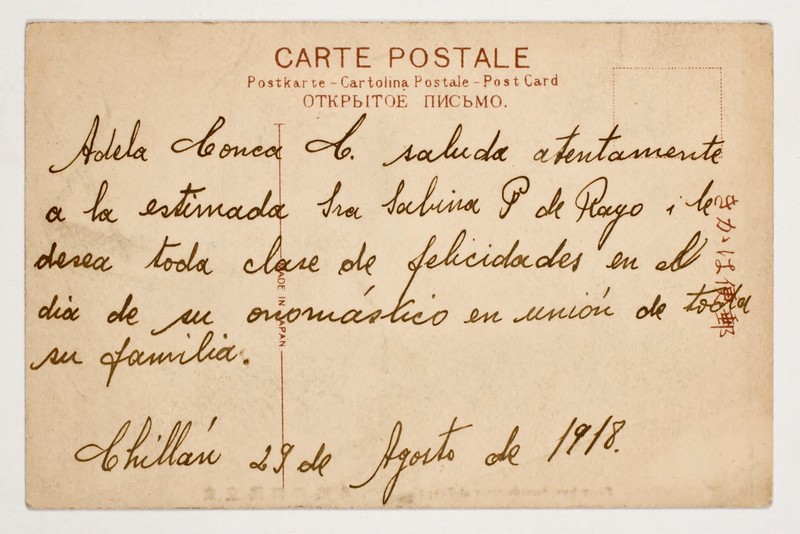 CARTE POSTALE
Postkarte - Cartolina Postale - Post Card
ОТКРЫТОЕ ПИСЬМО.
Adela Conca C. saluda atentamente
a la estimada Sra Sabina P de Rayo i le
desea toda clase de felicidades en el
dia de su onomástico en unión de toda
su familia.
Chillán 29 de Agosto de 1918.
MADE IN JAPAN
きかは便郵